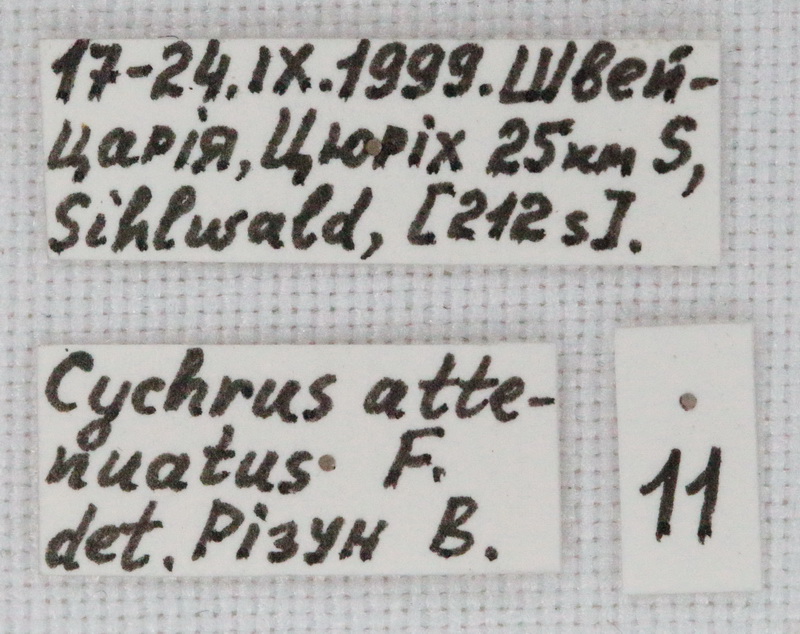 17-24.IX.1999. Швей-
царія, Цюріх 25км S,
Sihlwald, [212s].
Cychrus atte-
nuatus F.
det. Різун В.
11